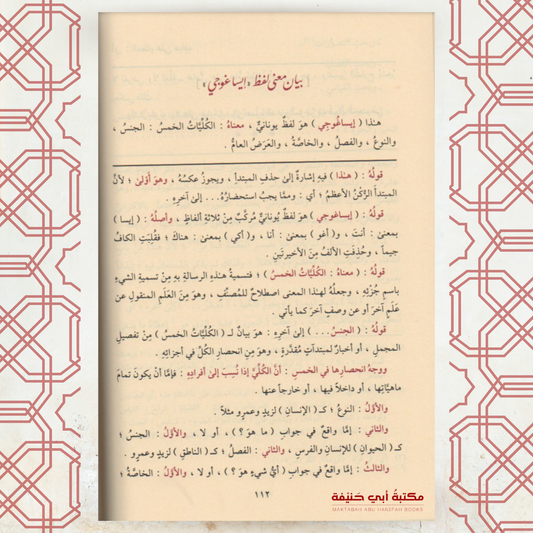 بيان معنى لفظ « إيساغوجي »
هذا ( إيساغُوجِي ) هوَ لفظٌ يونانيٌّ ، معناهُ : الكُلِّيَّاتُ الخَمسُ : الجنسُ ،
والنوعُ ، والفصلُ ، والخاصَّةُ ، والعَرَضُ العامُّ .
قولُهُ : ( هـٰذا ) فيهِ إشارةٌ إلىٰ حذفِ المبتدأِ ، ويجوزُ عكسُهُ ، وهوَ أَوْلىٰ ؛ لأنَّ
المبتدأَ الرُّكنُ الأعظمُ ؛ أي : وممَّا يجبُ استحضارُهُ . . . إلىٰ آخرِهِ .
قولُهُ : ( إيساغوجي ) هوَ لفظٌ يُونانيٌّ مُركَّبٌ مِنْ ثلاثةِ ألفاظٍ ، وأصلُهُ : ( إيسا )
بمعنىٰ : أنتَ ، و( أغو ) بمعنىٰ : أنا ، و( أكي ) بمعنىٰ : هناكَ ؛ فقُلِبَتِ الكافُ
جيماً ، وحُذِفَتِ الألفُ مِنَ الأخيرتَينِ .
قولُهُ : ( معناهُ : الكُلِّيَّاتُ الخمسُ ) ؛ فتسميةُ هـٰذهِ الرسالةِ بهِ مِنْ تسميةِ الشيءِ
باسمِ جُزْئِهِ ، وجعلُهُ لهـٰذا المعنى اصطلاحٌ للمُصنِّفِ ، وهوَ مِنَ العَلَمِ المنقولِ عن
عَلَمٍ آخرَ أو عن وصفٍ آخرَ كما يأتي .
قولُهُ : ( الجنسُ . . . ) إلىٰ آخرِهِ : هوَ بيانٌ لـ ( الكُلِّيَّاتُ الخمسُ ) مِنْ تفصيلِ
المجملِ ، أو أخبارٌ لمبتدآتٍ مُقدَّرةٍ ، وهوَ مِنِ انحصارِ الكلِّ في أجزائِهِ .
ووجهُ انحصارِها في الخمسِ : أنَّ الكُلِّيَّ إذا نُسِبَ إلىٰ أفرادِهِ : فإمَّا أنْ يكونَ تمامَ
ماهيَّاتِها ، أو داخلاً فيها ، أو خارجاً عنها .
والأوَّلُ : النوعُ ؛ كـ ( الإنسانِ ) لزيدٍ وعمرٍو مثلاً .
والثاني : إمَّا واقعٌ في جوابِ ( ما هوَ ؟ ) ، أو لا ، والأوَّلُ : الجنسُ ؛
كـ ( الحيوانِ ) للإنسانِ والفرسِ ، والثاني : الفصلُ ؛ كـ ( الناطقِ ) لزيدٍ وعمرٍو .
والثالثُ : إمَّا واقعٌ في جوابِ ( أيُّ شيءٍ هوَ ؟ ) ، أو لا ، والأوَّلُ : الخاصَّةُ ؛
١١٢
مكتبة أبي حنيفة
MAKTABAH ABU HANIFAH BOOKS